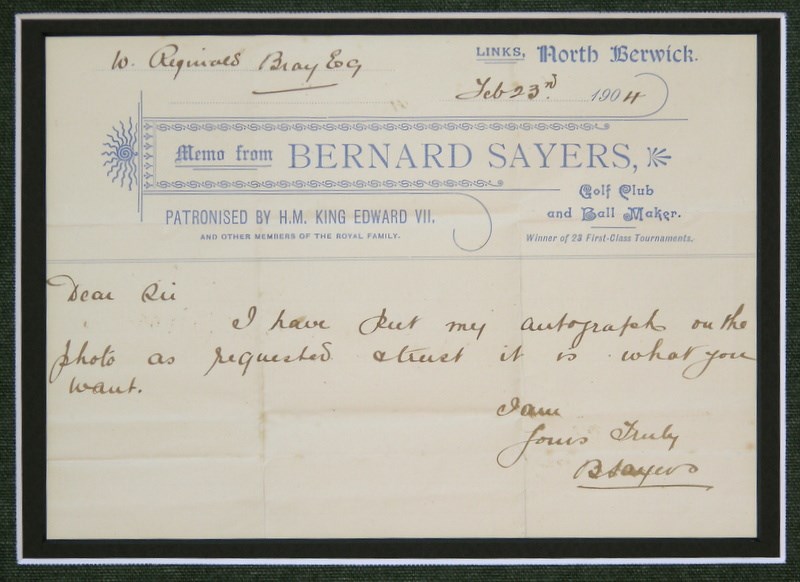 W. Reginald Bray Esq
LINKS, North Berwick.
Feb 23rd. 1904
Memo from BERNARD SAYERS,
Golf Club
and Ball Maker.
PATRONISED BY H.M. KING EDWARD VII.
AND OTHER MEMBERS OF THE ROYAL FAMILY.
Winner of 23 First-Class Tournaments.
Dear Sir
I have put my autograph on the
photo as requested & trust it is what you
want.
I am
Yours Truly
B Sayers